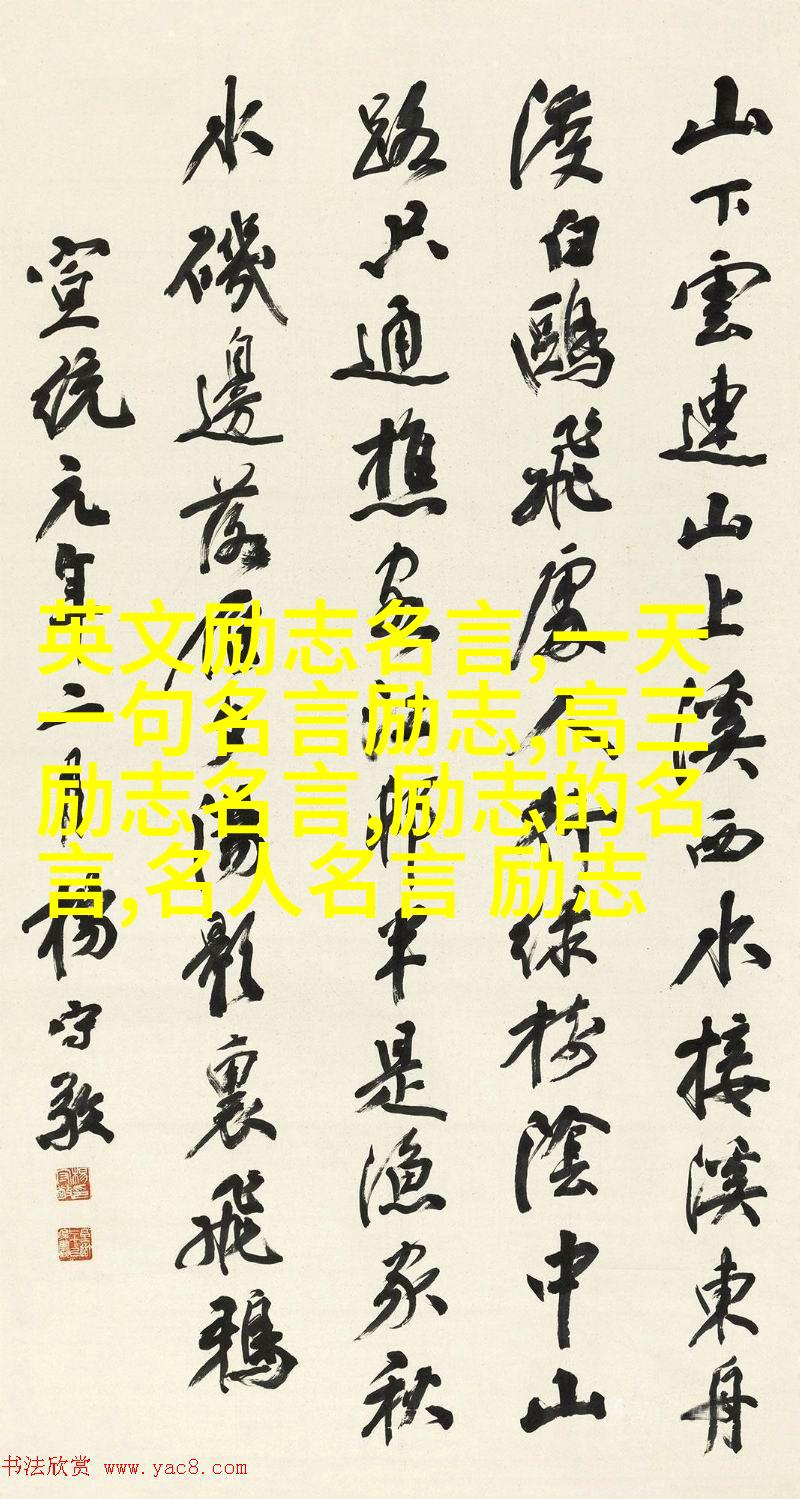 山下雲連山上溪西水接溪東舟
渡白鷗飛處人行綠樹陰中山
路只通樵客江邨半是漁家秋
水磯邊落雁夕陽影裏飛鴉
宣統元年二月楊守敬
英文励志名言,一天
一句名言励志,高三
励志名言,励志的名
言,名人名言 励志
书法欣赏 www.yac8.com